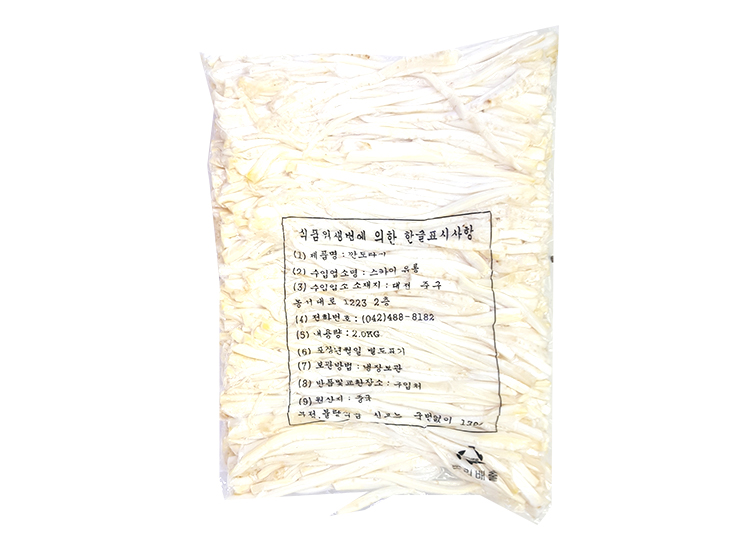 식품위생법에 의한 한글표시사항
(1) 제품명 : 깐도라지
(2) 수입업소명 : 스카이 유통
(3) 수입업소 소재지 : 대전 중구
동서대로 1223 2층
(4) 전화번호 : (042)488-8182
(5) 내용량 : 2.0KG
(6) 포장년월일 별도표기
(7) 보관방법 : 냉장보관
(8) 반품및교환장소 : 구입처
(9) 원산지 : 중국
신고는 국번없이